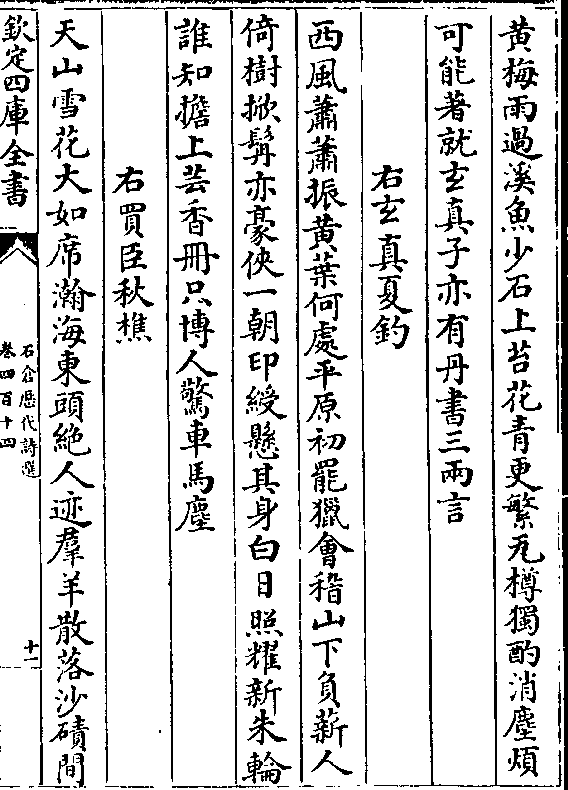 黄梅雨過溪魚少石上苔花青更繁瓦樽獨酌消塵煩
可能著就玄真子亦有丹書三兩言
右玄真夏釣
西風蕭蕭振黄葉何處平原初罷獵㑹稽山下負薪人
倚樹掀髯亦豪俠一朝印綬懸其身白日照耀新朱輪
誰知擔上芸香冊只博人驚車馬塵
右買臣秋樵
天山雪花大如席瀚海東頭絶人迹羣羊散落沙磧間
欽定四庫全書
石倉歴代詩選
卷四百十四
十一